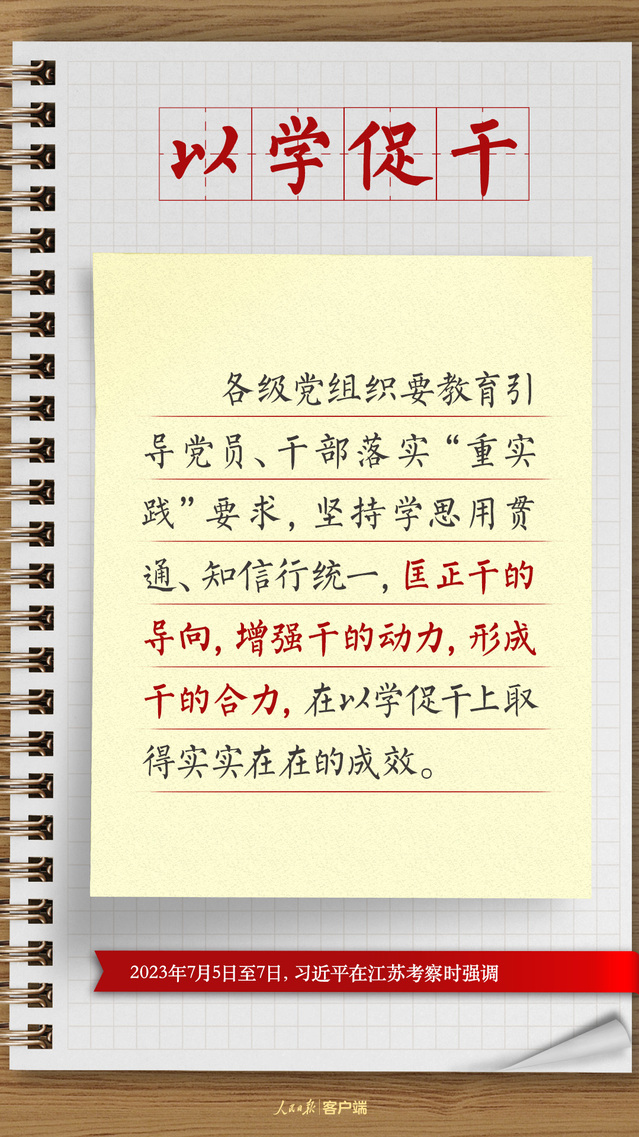 以学促干
各级党组织要教育引
导党员、干部落实“重实
践”要求，坚持学思用贯
通、知信行统一，匡正干的
导向，增强干的动力，形成
干的合力，在以学促干上取
得实实在在的成效。
2023年7月5日至7日，习近平在江苏考察时强调
人民日报|客户端